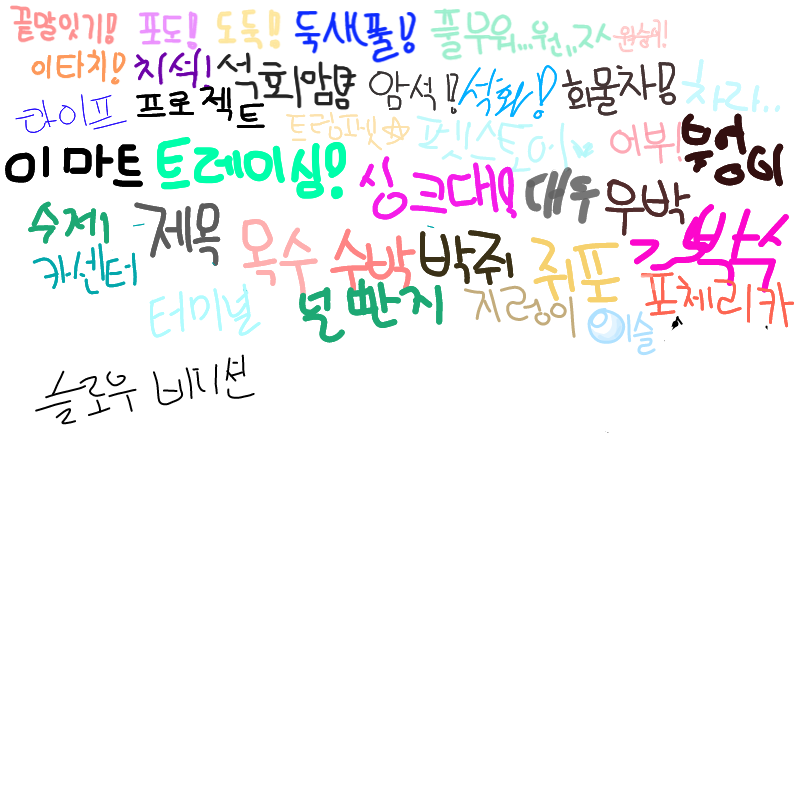 끝말잇기! 포도! 도둑! 둑새풀! 풀무원...원...지시 원숭이!
이타치! 치석! 석회암! 암석! 석화! 화물차! 차라..
라이프 프로젝트 트럼펫☆ 펫스토어 어부! 부엉이
이마트 트레이싱! 싱크대! 대우 우박
수제 제목 목수 수박 박쥐 쥐포 박수
카센터 터미널 널빤지 지렁이 이슬 포체리카
슬로우 비디션